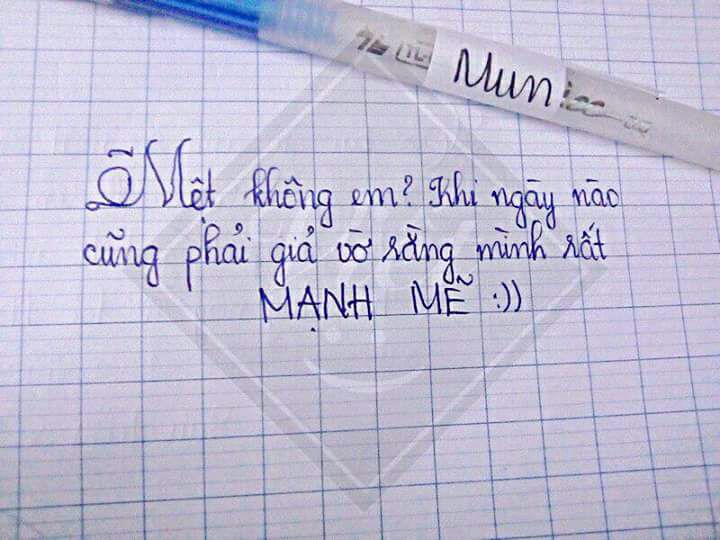 Mun
Mệt không em? Khi ngày nào
cũng phải giả vờ rằng mình rất
MẠNH MẼ :))